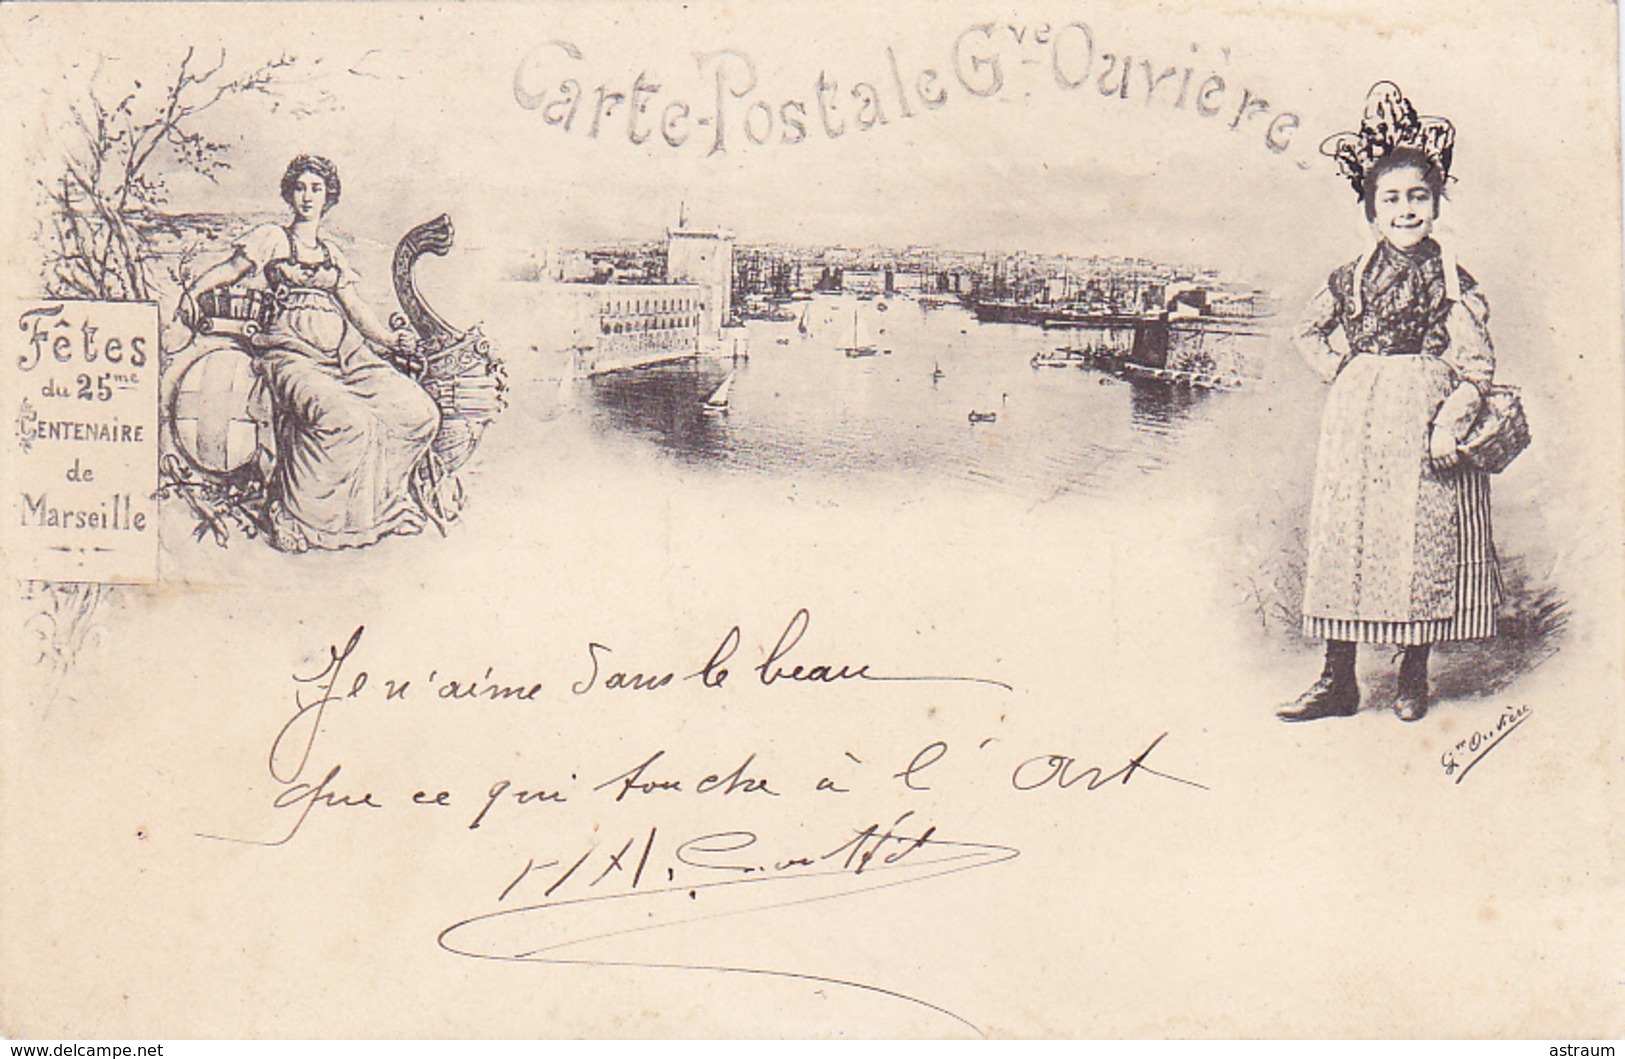 Carte-Postale Gve Ouvière.
Fêtes
du 25me
CENTENAIRE
de
Marseille
Je n'aime dans le beau
que ce qui touche à l'Art
Gve Ouvière
www.delcampe.net
astraum